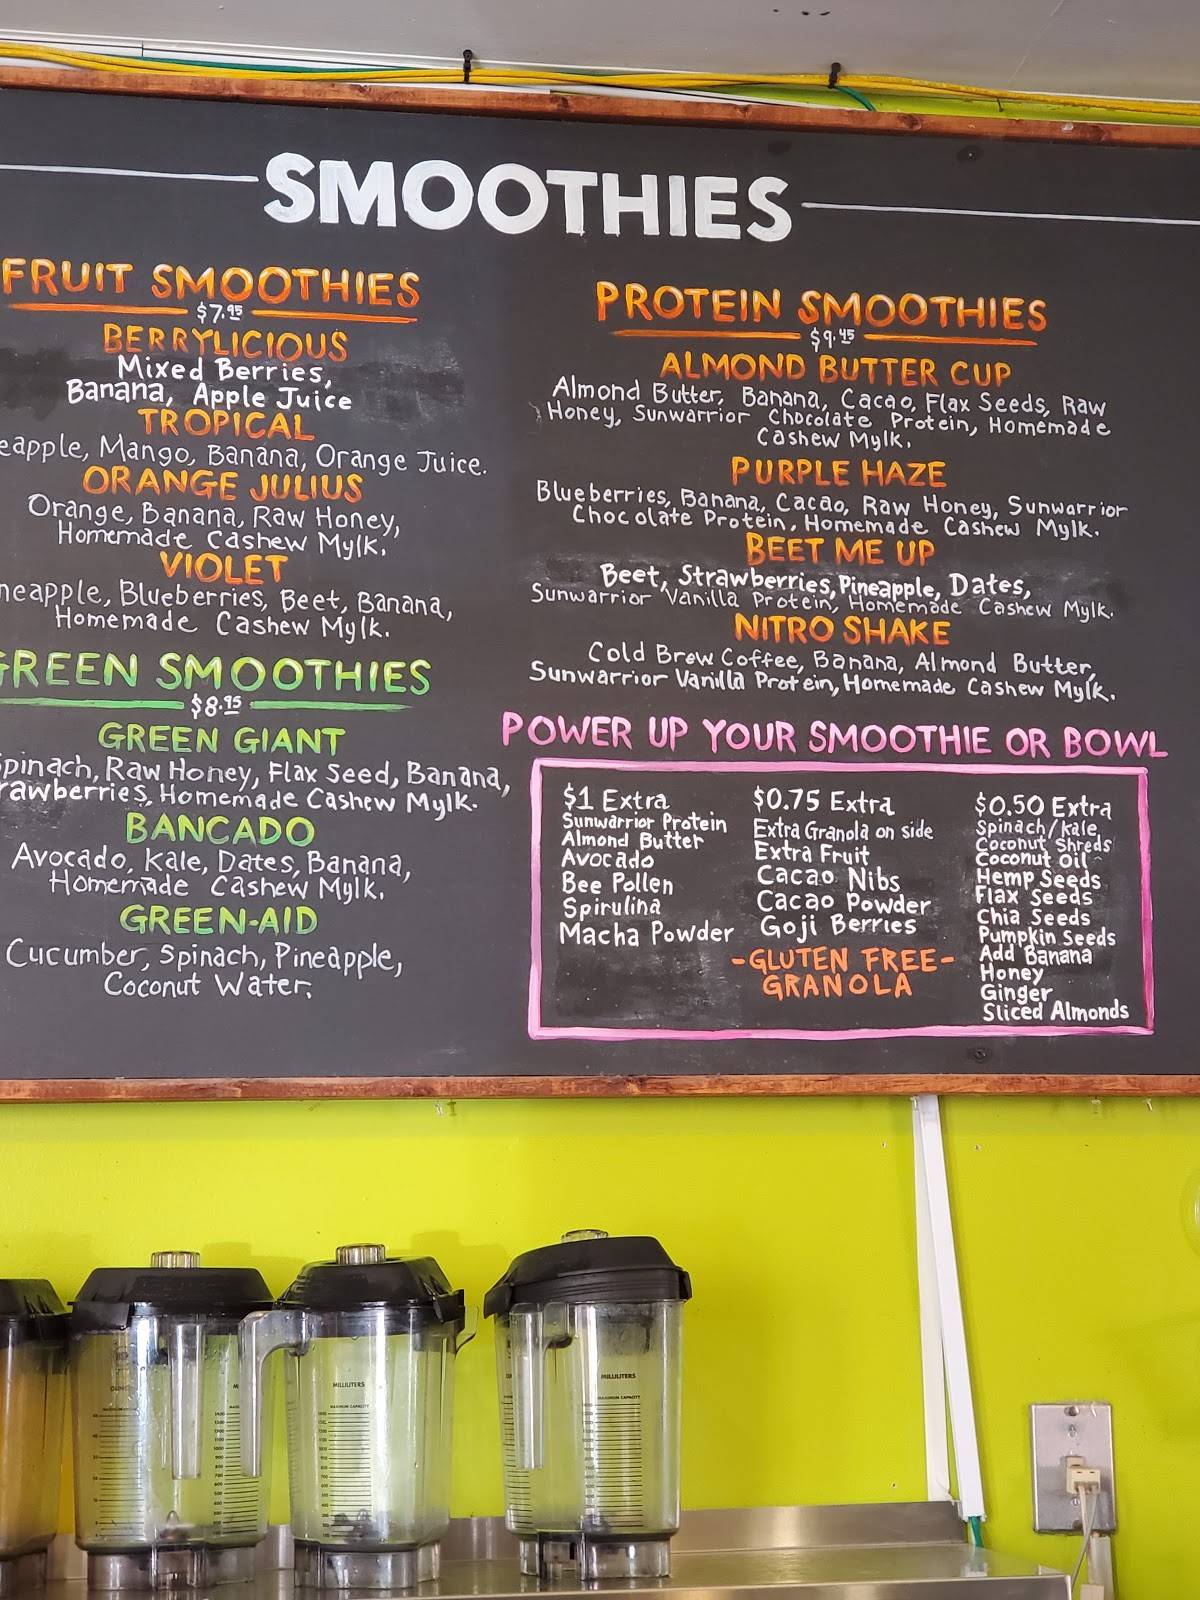 SMOOTHIES
FRUIT SMOOTHIES
$7.95
BERRYLICIOUS
Mixed Berries,
Banana, Apple Juice
TROPICAL
eapple, Mango, Banana, Orange Juice.
ORANGE JULIUS
Orange, Banana, Raw Honey,
Homemade Cashew Mylk.
VIOLET
neapple, Blueberries, Beet, Banana,
Homemade Cashew Mylk.
GREEN SMOOTHIES
$8.95
GREEN GIANT
Spinach, Raw Honey, Flax Seed, Banana,
rawberries, Homemade Cashew Mylk.
BANCADO
Avocado, Kale, Dates, Banana,
Homemade Cashew Mylk.
GREEN-AID
Cucumber, Spinach, Pineapple,
Coconut Water.
PROTEIN SMOOTHIES
$9.45
ALMOND BUTTER CUP
Almond Butter, Banana, Cacao, Flax Seeds, Raw
Honey, Sunwarrior Chocolate Protein, Homemade
Cashew Mylk.
PURPLE HAZE
Blueberries, Banana, Cacao, Raw Honey, Sunwarrior
Chocolate Protein, Homemade Cashew Mylk.
BEET ME UP
Beet, Strawberries, Pineapple, Dates,
Sunwarrior Vanilla Protein, Homemade Cashew Mylk.
NITRO SHAKE
Cold Brew Coffee, Banana, Almond Butter,
Sunwarrior Vanilla Protein, Homemade Cashew Mylk.
POWER UP YOUR SMOOTHIE OR BOWL
$1 Extra
Sunwarrior Protein
Almond Butter
Avocado
Bee Pollen
Spirulina
Macha Powder
$0.75 Extra
Extra Granola on side
Extra Fruit
Cacao Nibs
Cacao Powder
Goji Berries
-GLUTEN FREE-
GRANOLA
$0.50 Extra
Spinach/Kale
Coconut Shreds
Coconut Oil
Hemp Seeds
Flax Seeds
Chia Seeds
Pumpkin Seeds
Add Banana
Honey
Ginger
Sliced Almonds
MILLILITERS
MAXIMUM CAPACITY
MILLILITERS
MAXIMUM CAPACITY